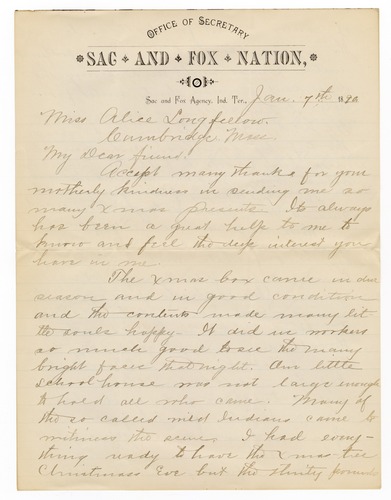 OFFICE OF SECRETARY
SAC AND FOX NATION,
Sac and Fox Agency, Ind. Ter., Jan. 7th 1890
Miss Alice Longfellow.
Cambridge Mass.
My Dear friend.
Accept many thanks for your
motherly kindness in sending me so
many Xmas presents. It always
has been a great help to me to
know and feel the deep interest you
have in me.
The Xmas box came in due
season and in good condition
and the contents made many lit
tle souls happy. It did us workers
so much good to see the many
bright faces that night. Our little
school house was not large enough
to hold all who came. Many of
the so called wild Indians came to
witness the scene. I had every-
thing ready to have the Xmas tree
Christmass Eve but the thirty pound